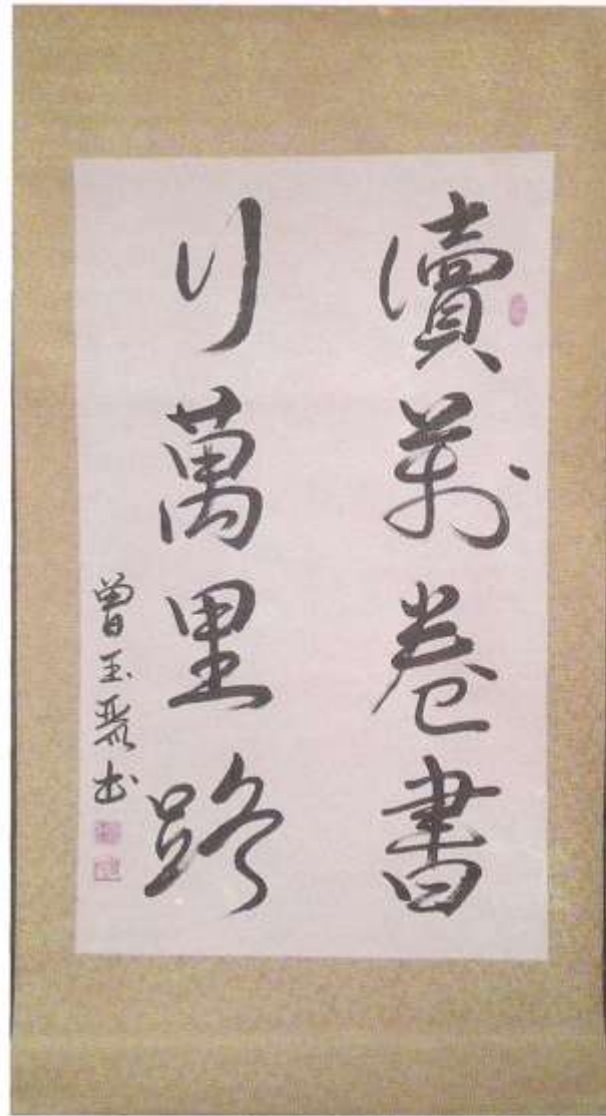 讀萬卷書
行萬里路
曾玉聚书